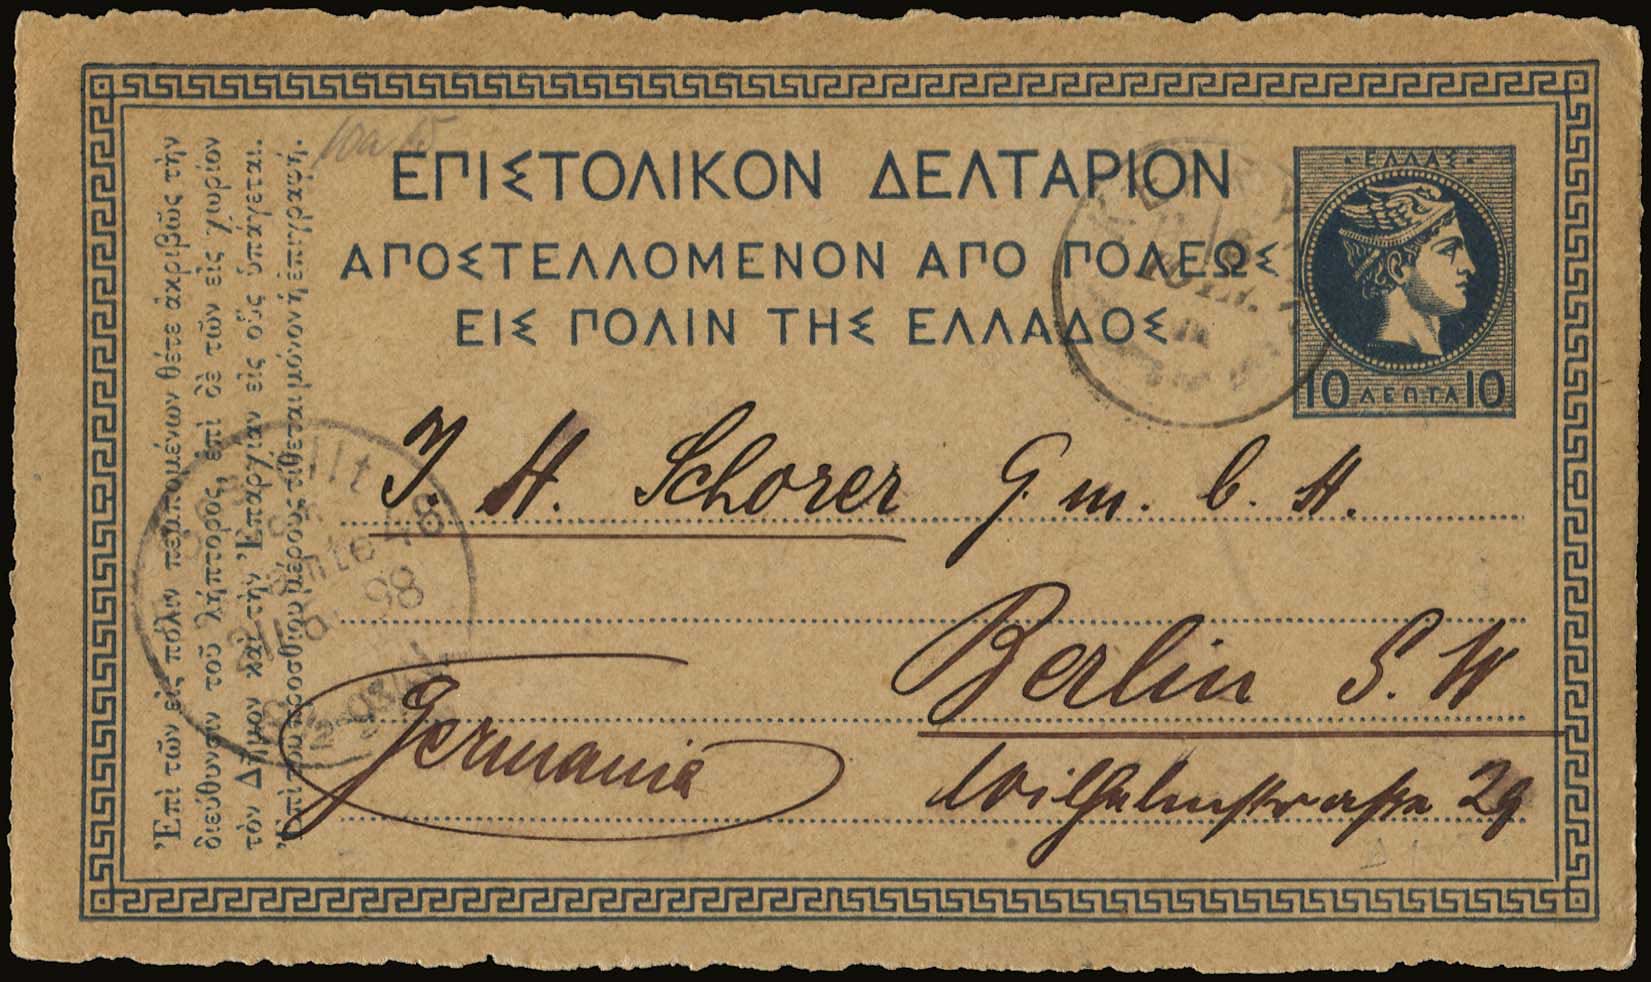 ΕΠΙΣΤΟΛΙΚΟΝ ΔΕΛΤΑΡΙΟΝ
ΑΠΟΣΤΕΛΛΟΜΕΝΟΝ ΑΠΟ ΠΟΛΕΩΣ
ΕΙΣ ΠΟΛΙΝ ΤΗΣ ΕΛΛΑΔΟΣ
ΕΛΛΑΣ
10 ΛΕΠΤΑ 10
Ἐπὶ τῶν εἰς πόλιν πεμπομένων θέτε ἀκριβῶς τὴν
διεύθυνσιν τοῦ λήπτορος, ἐπὶ δὲ τῶν εἰς χωρίον
τὸν Δῆμον καὶ τὴν Ἐπαρχίαν εἰς οὓς ὑπάγεται.
Ἐπὶ τοῦ προσθίου μέρους τίθεται μόνον ἡ ἐπιγραφή.
J. H. Schorer G. m. b. H.
Berlin S. W
Germania
Wilhelmstrasse 29
98